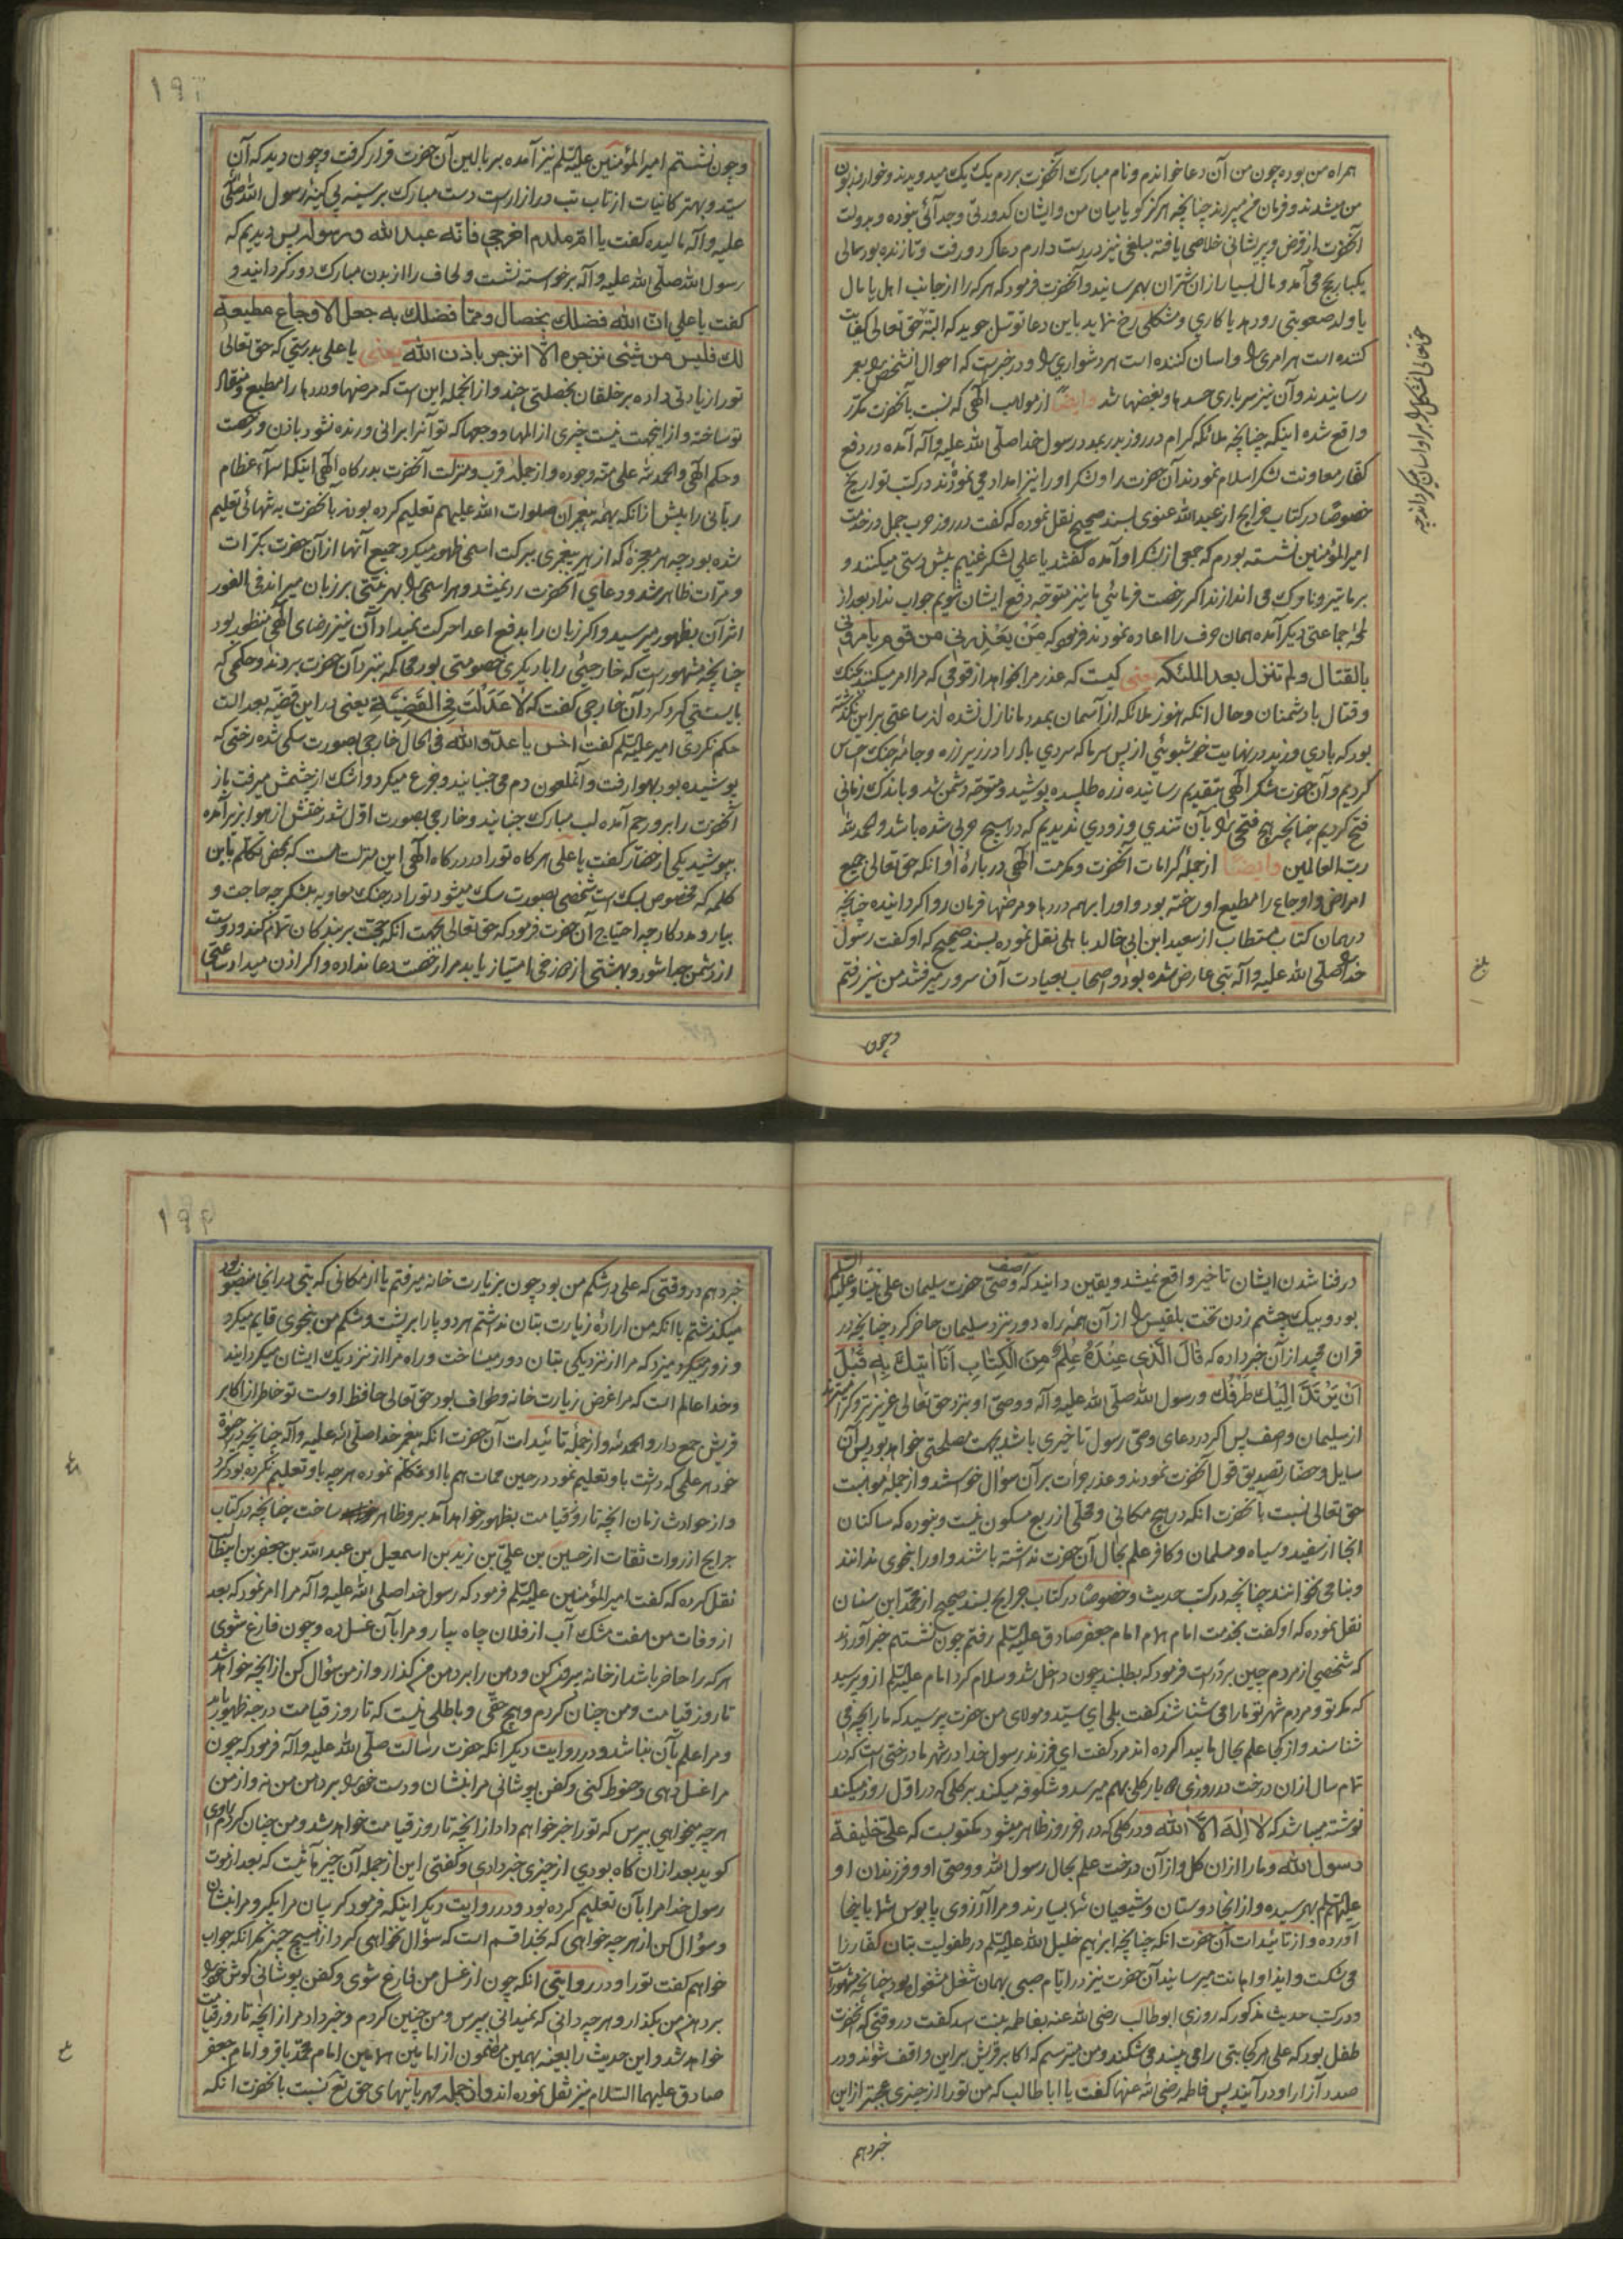 همراه من بوده چون من آن دعا خواندم و نام مبارک آنحضرت بردم یک یک میدویدند و
من میشدند و فرمان میبردند چنانچه هرگز گویا میان من و ایشان کدورتی و جدائی نبوده و بدولت
آنحضرت از قرض و پریشانی خلاصی یافته مبلغی نیز در دست دارم دعا کرد و رفت و تا زنده بود سالی
یکبار بحج می آمد و مال بسیار از ان شتران بهم رسانید و آنحضرت فرمود که هر که را از جانب اهل یا مال
یا ولد صعوبتی رو دهد یا کاری و مشکلی رخ نماید باین دعا توسل جوید که البته حق تعالی کفایت
کننده است هر امری را و اسان کننده است هر دشواری را و در خبرست که احوال انشخص را بعمر
رسانیدند و آن نیز سرباری حسدها و بغضها شد وایضا از مواهب الهی که نسبت بآنحضرت مکرر
واقع شده اینکه چنانچه ملائکه کرام در روز بدر بمدد رسول خدا صلی الله علیه وآله آمده در دفع
کفار معاونت لشکر اسلام نمودند آن حضرت را و لشکر او را نیز امداد می نمودند در کتب تواریخ
خصوصا در کتاب خرایج از عبد الله عنوی بسند صحیح نقل نموده که گفت در روز حرب جمل در خدمت
امیر المؤمنین نشسته بودم که جمعی از لشکر او آمده گفتند یا علی لشکر غنیم پیش دستی میکنند و
بر ما تیر و ناوک می اندازند اگر رخصت فرمائی ما نیز متوجه دفع ایشان شویم جواب نداد بعد از
لمحه جماعتی دیگر آمده همان حرف را اعاده نمودند فرمود که من یعذرنی من قوم یامرونی
بالقتال ولم تنزل بعد الملئکه یعنی کیست که عذر مرا بخواهد از قومی که مرا امر میکنند بجنک
و قتال با دشمنان و حال انکه هنوز ملائکه از آسمان بمدد ما نازل نشده اند ساعتی بر این نگذشته
بود که بادی وزید در نهایت خوشبوئی از پس سر ما که سردی باد را در زیر زره و جامه جنک احساس
کردیم و آن حضرت شکر الهی بتقدیم رسانیده زره طلبیده پوشید و متوجه دشمن شد و باندک زمانی
فتح کردیم چنانچه هیچ فتحی را بآن تندی و زودی ندیدیم که در هیچ حربی شده باشد والحمد لله
رب العالمین وایضا از جمله کرامات آنحضرت و مکرمت الهی درباره او انکه حق تعالی جمیع
امراض و اوجاع را مطیع او ساخته بود و او را بر همه دردها و مرضها فرمان روا گردانیده چنانچه
در همان کتاب مستطاب از سعید ابن ابی خالد باهلی نقل نموده بسند صحیح که او گفت رسول
خدا صلی الله علیه وآله تبی عارض شده بود و اصحاب بعیادت آن سرور میرفتند من نیز رفتم
وچون
حق تعالی انشکل را بر او اسان میگرداند
بلغ
۱۹۳
وچون نشستم امیر المؤمنین علیه السلم نیز آمده بر بالین آن حضرت قرار گرفت و چون دید که آن
سید و بهتر کائنات از تاب تب در ازارست دست مبارک بر سینه بی کینه رسول الله صلی
علیه وآله مالیده گفت یا ام ملدم اخرجی فانه عبد الله ورسوله پس دیدیم که
رسول الله صلی الله علیه وآله برخواسته نشست و لحاف را از بدن مبارک دور گردانید و
گفت یا علی ان الله فضلک بخصال ومما فضلک به جعل الاوجاع مطیعة
لک فلیس من شیئ تزجره الا انزجر باذن الله یعنی یا علی بدرستی که حق تعالی
تو را زیادتی داده بر خلقان بخصلتی چند و از انجمله این است که مرضها و دردها را مطیع و منقاد
تو ساخته و از اینجهت نیست چیزی از المها و وجعها که تو آنرا برانی و رنده نشود باذن و رخصت
و حکم الهی والحمد لله علی منه وجوده و از جمله قرب و منزلت آنحضرت بدرگاه الهی اینکه اسماء عظام
ربانی را پیش از انکه بهمه پیغمبران صلوات الله علیهم تعلیم کرده بودند بآنحضرت به تنهائی تعلیم
شده بود چه هر معجزه که از هر پیغمبری ببرکت اسمی ظهور میکرد جمیع آنها از آن حضرت بکرات
و مرات ظاهر شد و دعای آنحضرت رد نمیشد و هر اسمی را بهر نیتی بر زبان میراند فی الفور
اثر آن بظهور میرسید و اگر زبان را بدفع اعدا حرکت نمیداد آن نیز رضای الهی منظور بود
چنانچه مشهورست که خارجئی را با دیگری خصومتی بود محاکمه بنزد آن حضرت بردند و حکمی که
بایستی کرد کرد آن خارجی گفت که لا عدلت فی القضیة یعنی در این قضیه بعدالت
حکم نکردی امیر علیه السلم گفت اخس یا عدو الله فی الحال خارجی بصورت سگی شده رختی که
پوشیده بود بهوا رفت و آنملعون دم می جنبانید و فزع میکرد و اشک از چشمش میرفت باز
آنحضرت را برو رحم آمده لب مبارک جنبانید و خارجی بصورت اول شد رختش از هوا بزیر آمده
بپوشید یکی از حضار گفت یا علی هرگاه تو را در درگاه الهی این منزلت است که بمحض تکلم باین
کلمه که مخصوص سگ است شخصی بصورت سگ میشود تو را در جنک معاویه بلشکر چه حاجت و
بیار و مددکار چه احتیاج آن حضرت فرمود که حق تعالی بجهت انکه حجت بر بندگان تمام کند و دوست
از دشمن جدا شود و بهشتی از دوزخی امتیاز یابد مرا رخصت دعا نداده و اگر اذن میداد ساعتی
در فنا شدن ایشان تاخیر واقع نمیشد و یقین دانید که آصف وصی حضرت سلیمان علی نبینا وعلیه السلم
بود و بیک چشم زدن تخت بلقیس را از آن همه راه دور بنزد سلیمان حاضر کرد چنانچه در
قران مجید از آن خبر داده که قال الذی عنده علم من الکتاب انا اتیک به قبل
ان یرتد الیک طرفک و رسول الله صلی الله علیه وآله و وصی او بنزد حق تعالی عزیزتر و گرامیترند
از سلیمان و اصف پس اگر در دعای وصی رسول تاخیری باشد بجهت مصلحتی خواهد بود پس آن
سایل و حضار تصدیق قول آنحضرت نمودند و عذر جرات بر آن سؤال خواستند و از جمله مواهبت
حق تعالی نسبت بآنحضرت انکه در هیچ مکانی و محلی از ربع مسکون نیست و نبوده که ساکنان
انجا از سفید و سیاه و مسلمان و کافر علم بحال آن حضرت نداشته باشند و او را بنحوی ندانند
و بنامی نخوانند چنانچه در کتب حدیث و خصوصا در کتاب خرایج بسند صحیح از محمد ابن سنان
نقل نموده که او گفت بخدمت امام همام امام جعفر صادق علیه السلم رفتم چون نشستم خبر آوردند
که شخصی از مردم چین بر در است فرمود که بطلبند چون داخل شد و سلام کرد امام علیه السلم ازو پرسید
که مگر تو و مردم شهر تو ما را می شناسند گفت بلی ای سید و مولای من حضرت پرسید که ما را بچه می
شناسند و از کجا علم بحال ما پیدا کرده اند مرد گفت ای فرزند رسول خدا در شهر ما درختی است که در
تمام سال ازان درخت در روزی دو بار گلی بهم میرسد و شکوفه میکند بر گلی که در اول روز میکند
نوشته میباشد که لا اله الا الله و در گلی که در اخر روز ظاهر میشود مکتوبست که علی خلیفة
رسول الله و ما را ازان گل و از آن درخت علم بحال رسول الله و وصی او و فرزندان او
علیهم السلم بهم رسیده و از انجا دوستان و شیعیان شما بسیارند و مرا ارزوی پابوس شما باینجا
آورده و از تائیدات آن حضرت انکه چنانچه ابراهیم خلیل الله علیه السلم در طفولیت بتان کفار را
می شکست و ایذا و اهانت میرسانید آن حضرت نیز در ایام صبی بهمان شغل مشغول بود چنانچه مشهورست
و در کتب حدیث مذکور که روزی ابوطالب رضی الله عنه بفاطمه بنت اسد گفت در وقتی که آنحضرت
طفل بود که علی هر کجا بتی را می بیند می شکند و من میترسم که اکابر قریش بر این واقف شوند و در
صدد آزار او در آیند پس فاطمه رضی الله عنها گفت یا ابا طالب که من تو را از چیزی عجبتر از این
خبر دهم
۱۹۴
خبر دهم در وقتی که علی در شکم من بود چون بزیارت خانه میرفتم یا از مکانی که بتی در انجا منصوب بود
میگذشتم با انکه من اراده زیارت بتان نداشتم هر دو پا را بر پشت و شکم من بنحوی قایم میکرد
و زور میزد که مرا از نزدیکی بتان دور میساخت و راه مرا از نزدیک ایشان میگردانید
و خدا عالم است که مرا غرض زیارت خانه و طواف بود حق تعالی حافظ اوست تو خاطر از اکابر
قریش جمع دار والحمد لله و از جمله تائیدات آن حضرت انکه پیغمبر خدا صلی الله علیه وآله چنانچه در حیوة
خود هر علمی که داشت باو تعلیم نمود در حین ممات هم با او تکلم نموده هر چه باو تعلیم نکرده بود کرد
و از حوادث زمان انچه تا روز قیامت بظهور خواهد آمد برو ظاهر ساخت چنانچه در کتاب
خرایج از روات ثقات از حسین بن علی بن زید بن اسمعیل بن عبد الله بن جعفر بن ابیطالب
نقل کرده که گفت امیر المؤمنین علیه السلم فرمود که رسول خدا صلی الله علیه وآله مرا امر نمود که بعد
از وفات من هفت مشک آب از فلان چاه بیار و مرا بآن غسل ده و چون فارغ شوی
هر که را حاضر باشد از خانه بیرون کن و دهن را بر دهن من گذار و از من سؤال کن از انچه خواهد شد
تا روز قیامت و من چنان کردم و هیچ حقی و باطلی نیست که تا روز قیامت درجه ظهور یابد
و مرا علم بآن نباشد و در روایت دیگر انکه حضرت رسالت صلی الله علیه وآله فرمود که چون
مرا غسل دهی و حنوط کنی و کفن پوشانی مرا بنشان و دست خود را بر دهن من نه و از من
هر چه میخواهی بپرس که تو را خبر خواهم داد از انچه تا روز قیامت خواهد شد و من چنان کردم راوی
گوید بعد ازان گاه بودی از چیزی خبر دادی و گفتی این از جمله آن چیزهائیست که بعد از فوت
رسول خدا مرا بآن تعلیم کرده بود و در روایت دیگر اینکه فرمود گریبان مرا بگیر و مرا بنشان
و سؤال کن از هر چه خواهی که بخدا قسم است که سؤال نخواهی کرد از هیچ چیز مگر انکه جواب
خواهم گفت تو را و در روایتی انکه چون از غسل من فارغ شوی و کفن پوشانی گوش خود را
بر دهن من بگذار و هر چه دانی که نمیدانی بپرس و من چنین کردم و خبر داد مرا از انچه تا روز قیامت
خواهد شد و این حدیث را بعینه بهمین مضمون از امامین همامین امام محمد باقر و امام جعفر
صادق علیهما السلام نیز نقل نموده اند و از جمله مهربانیهای حق تع نسبت بآنحضرت انکه